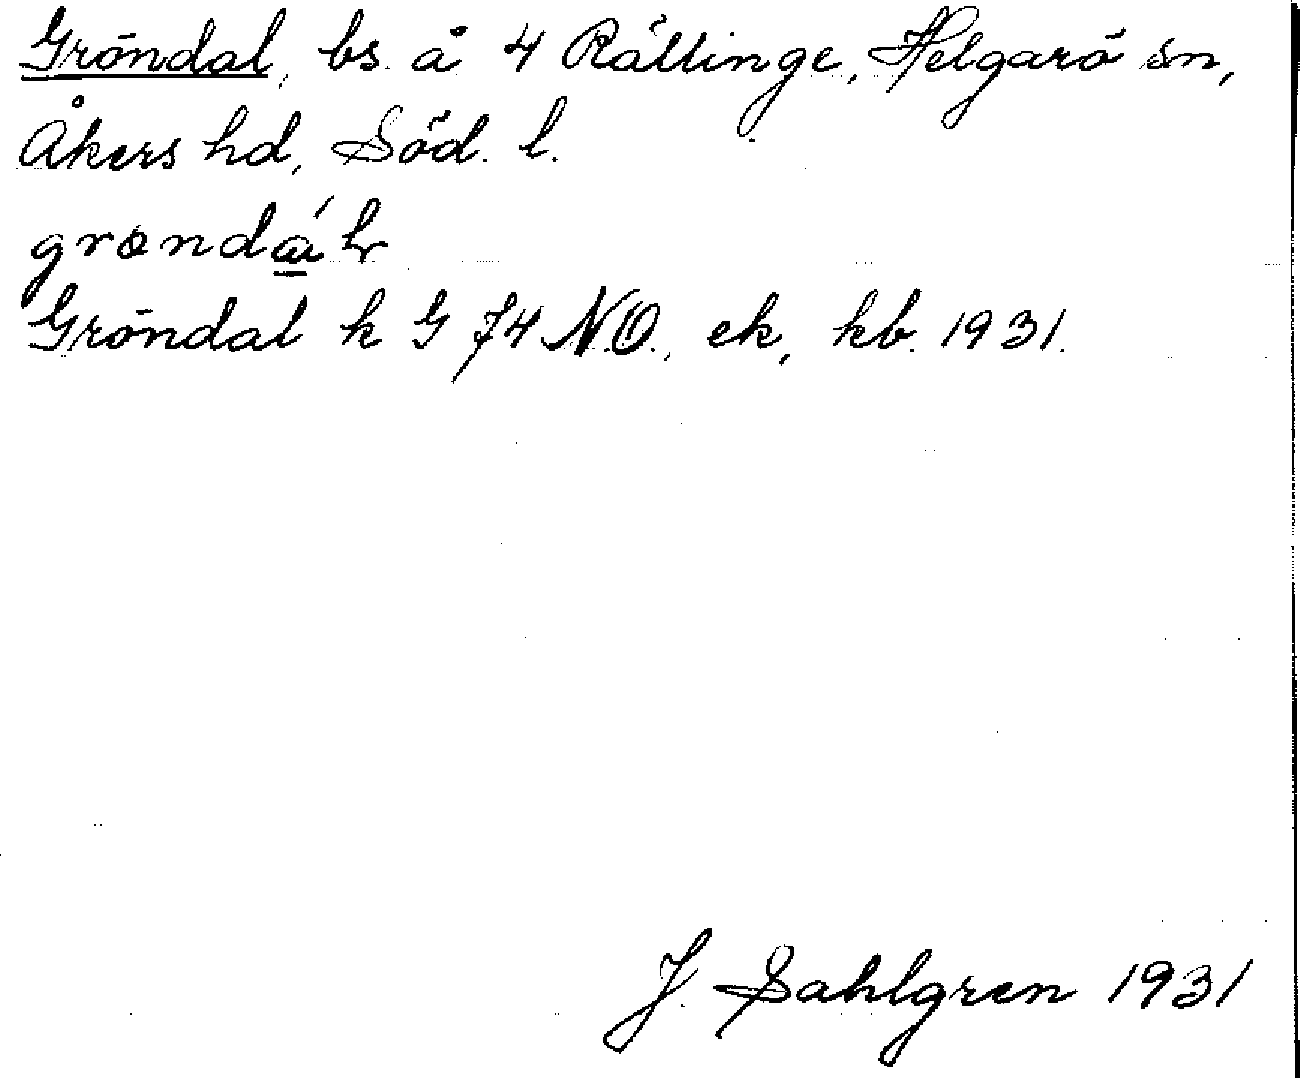 Gröndal, bs. å 4 Rällinge, Helgarö sn,
Åkers hd, Söd. l.
Gröndal k G J4 NO., ek, kb. 1931.
J. Sahlgren 1931